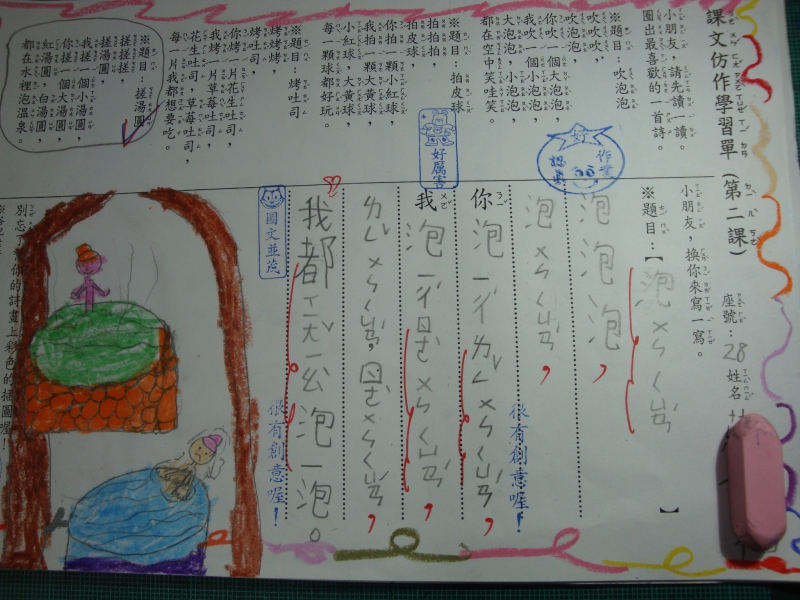 課文仿作學習單(第二課) 座號:28 姓名
小朋友,請先讀一讀。
圈出最喜歡的一首詩。
※題目:吹泡泡
吹吹吹,
吹泡泡,
你吹一個大泡泡,
我吹一個小泡泡,
大泡泡,小泡泡,
都在空中笑哇笑。
※題目:拍皮球
拍拍拍,
拍皮球,
你拍一顆小紅球,
我拍一顆大黃球,
小紅球,大黃球,
每一顆球都好玩。
※題目:烤吐司
烤烤烤,
烤吐司,
你烤一片花生吐司,
我烤一片草莓吐司,
花生吐司,草莓吐司,
每一片我都想要吃。
※題目:搓湯圓
搓搓搓,
搓湯圓,
我搓一個小湯圓,
你搓一個大湯圓,
紅湯圓,白湯圓,
都在水裡泡溫泉。
好作業認真
好厲害
小朋友,換你來寫一寫。
※題目:【泡ㄨㄣㄑㄩㄢˊ】
泡泡泡,
泡ㄨㄣㄑㄩㄢˊ,
你泡 ㄌㄥˇㄨㄣㄑㄩㄢˊ,
我泡 ㄨㄣㄑㄩㄢˊ,
ㄌㄥˇㄨㄣㄑㄩㄢˊ, ㄨㄣㄑㄩㄢˊ,
我都 泡一泡。
很有創意喔!
很有創意喔!
圖文並茂
別忘了 你的詩畫上彩色的插圖喔!